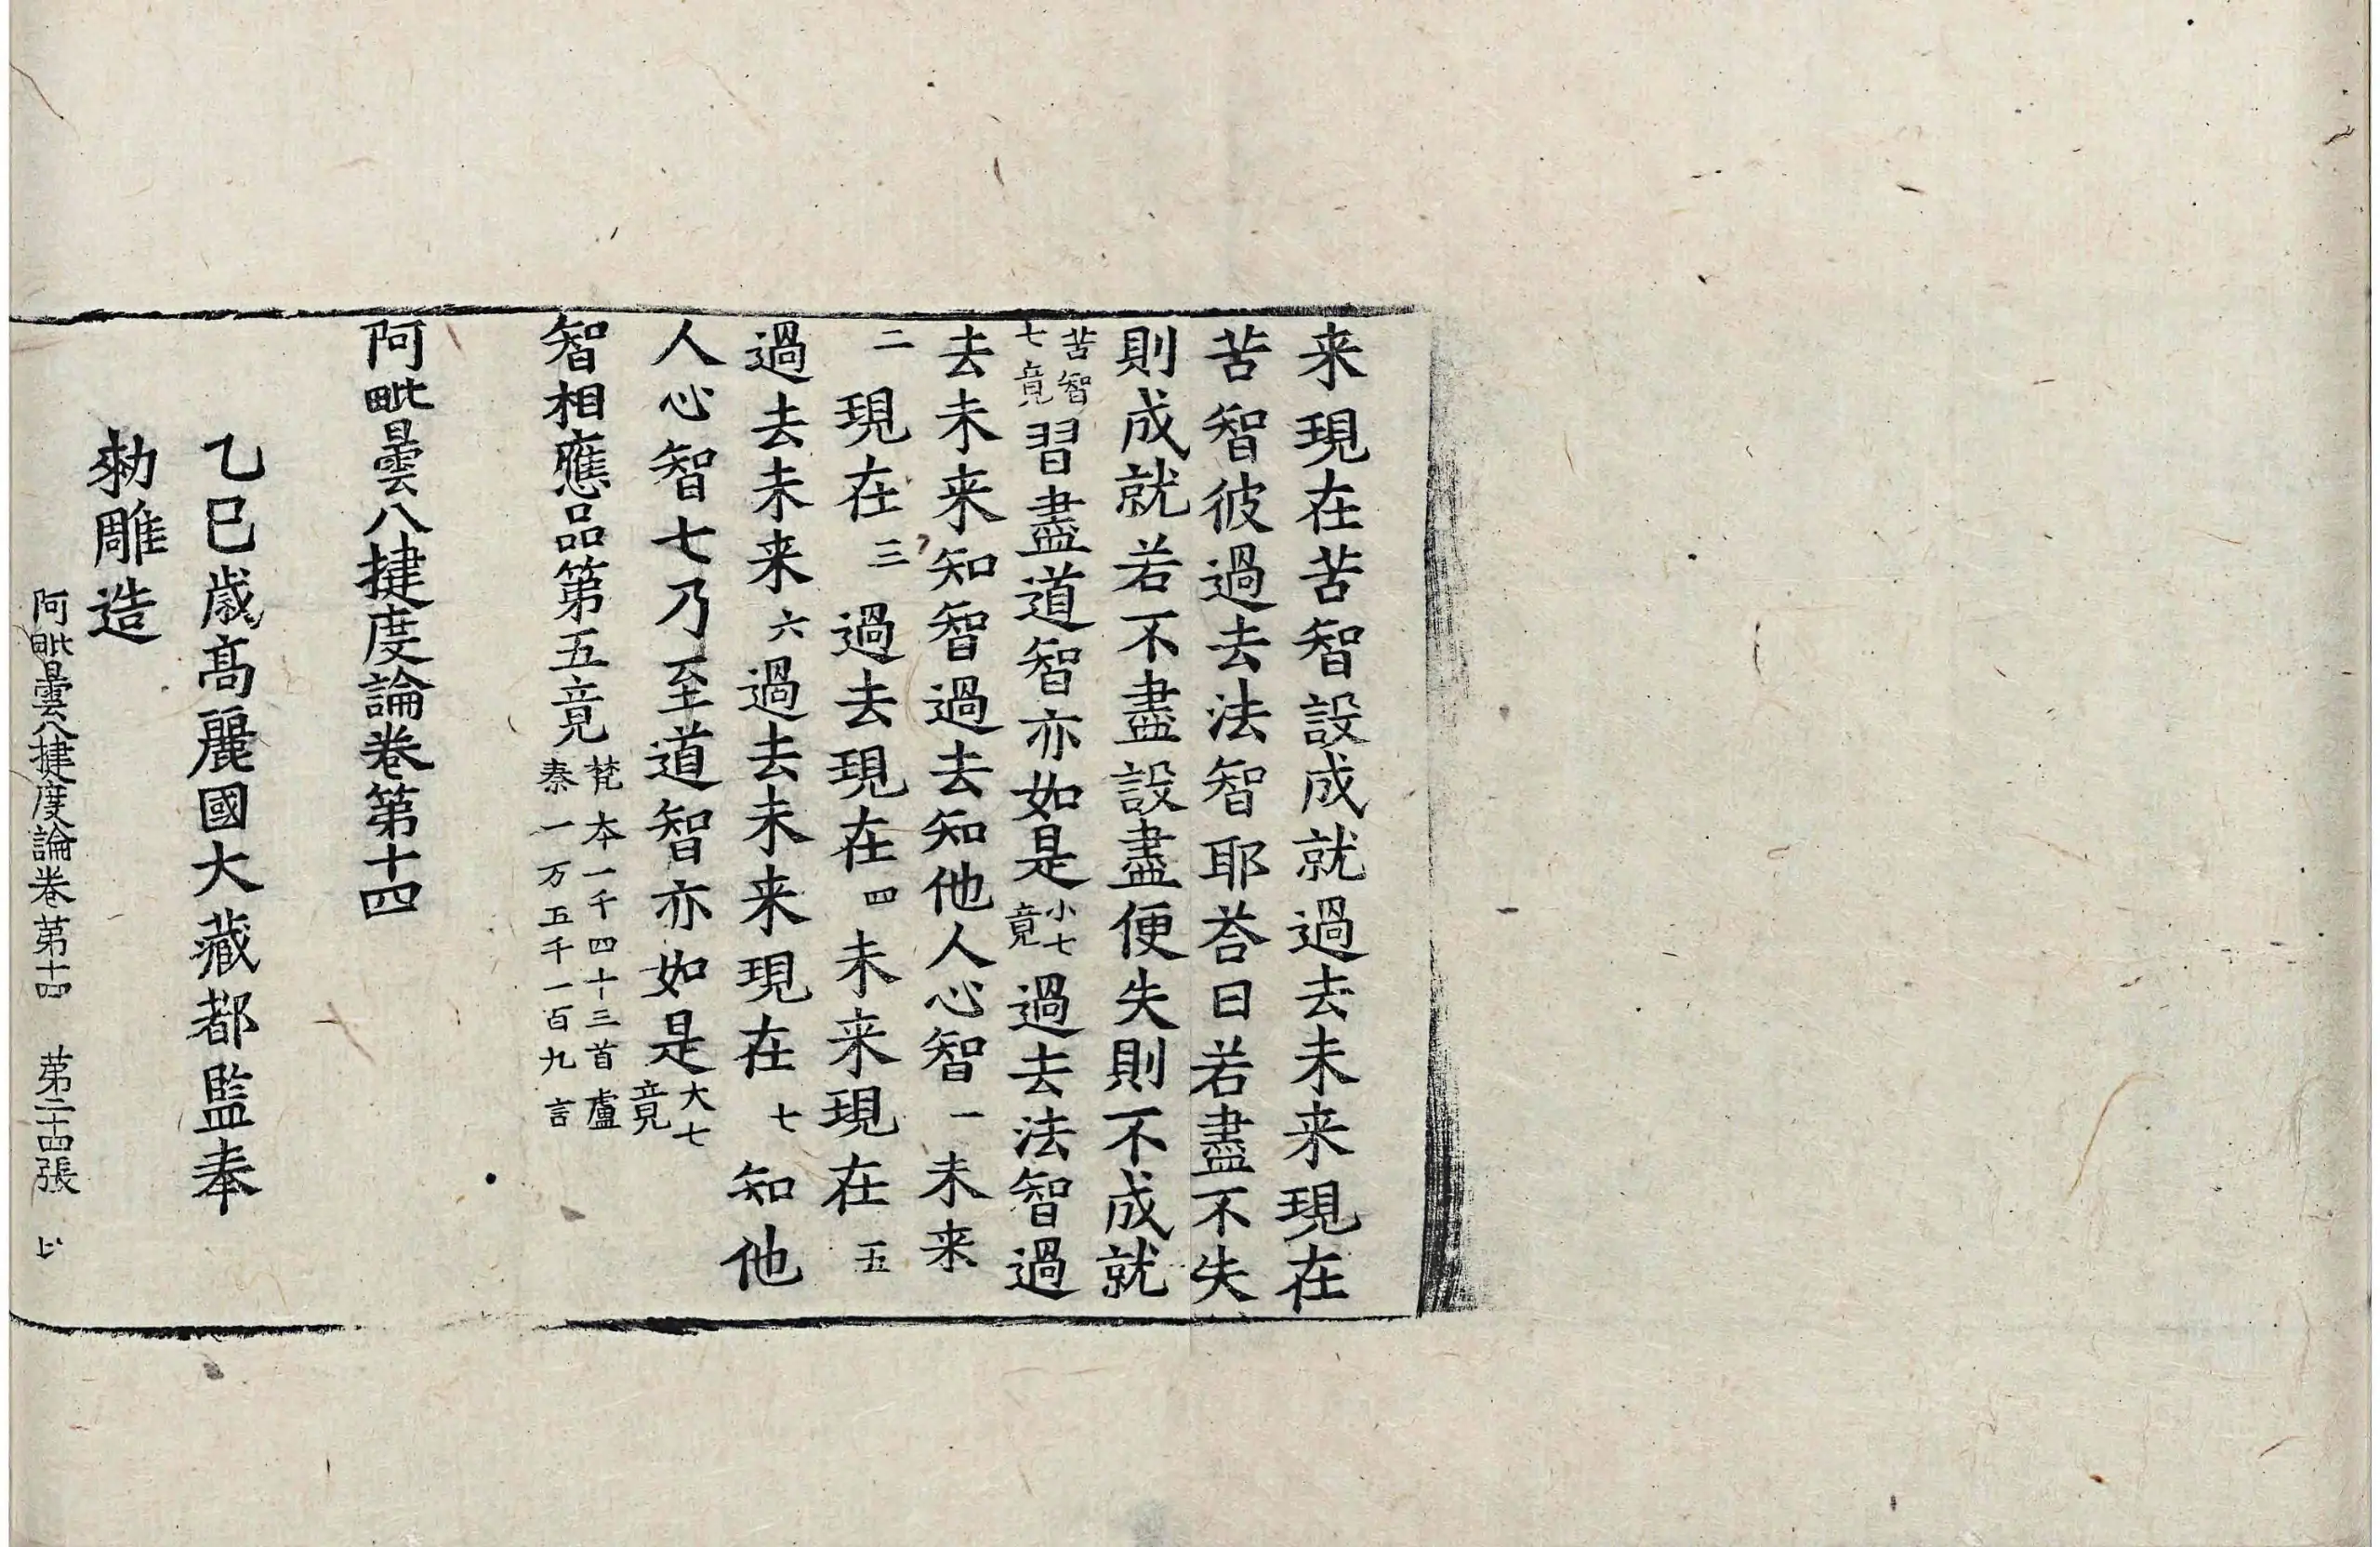 来現在苦智設成就過去未来現在
苦智彼過去法智耶荅曰若盡不失
則成就若不盡設盡便失則不成就
苦智七竟習盡道智亦如是小七竟過去法智過
去未来知智過去知他人心智一未来
二現在三過去現在四未来現在五
過去未来六過去未来現在七知他
人心智七乃至道智亦如是大七竟
智相應品第五竟梵本一千四十三首盧秦一万五千一百九言
阿毗曇八揵度論卷第十四
乙巳歳髙麗國大藏都監奉
勑雕造
阿毗曇八揵度論卷第十四 第二十四張